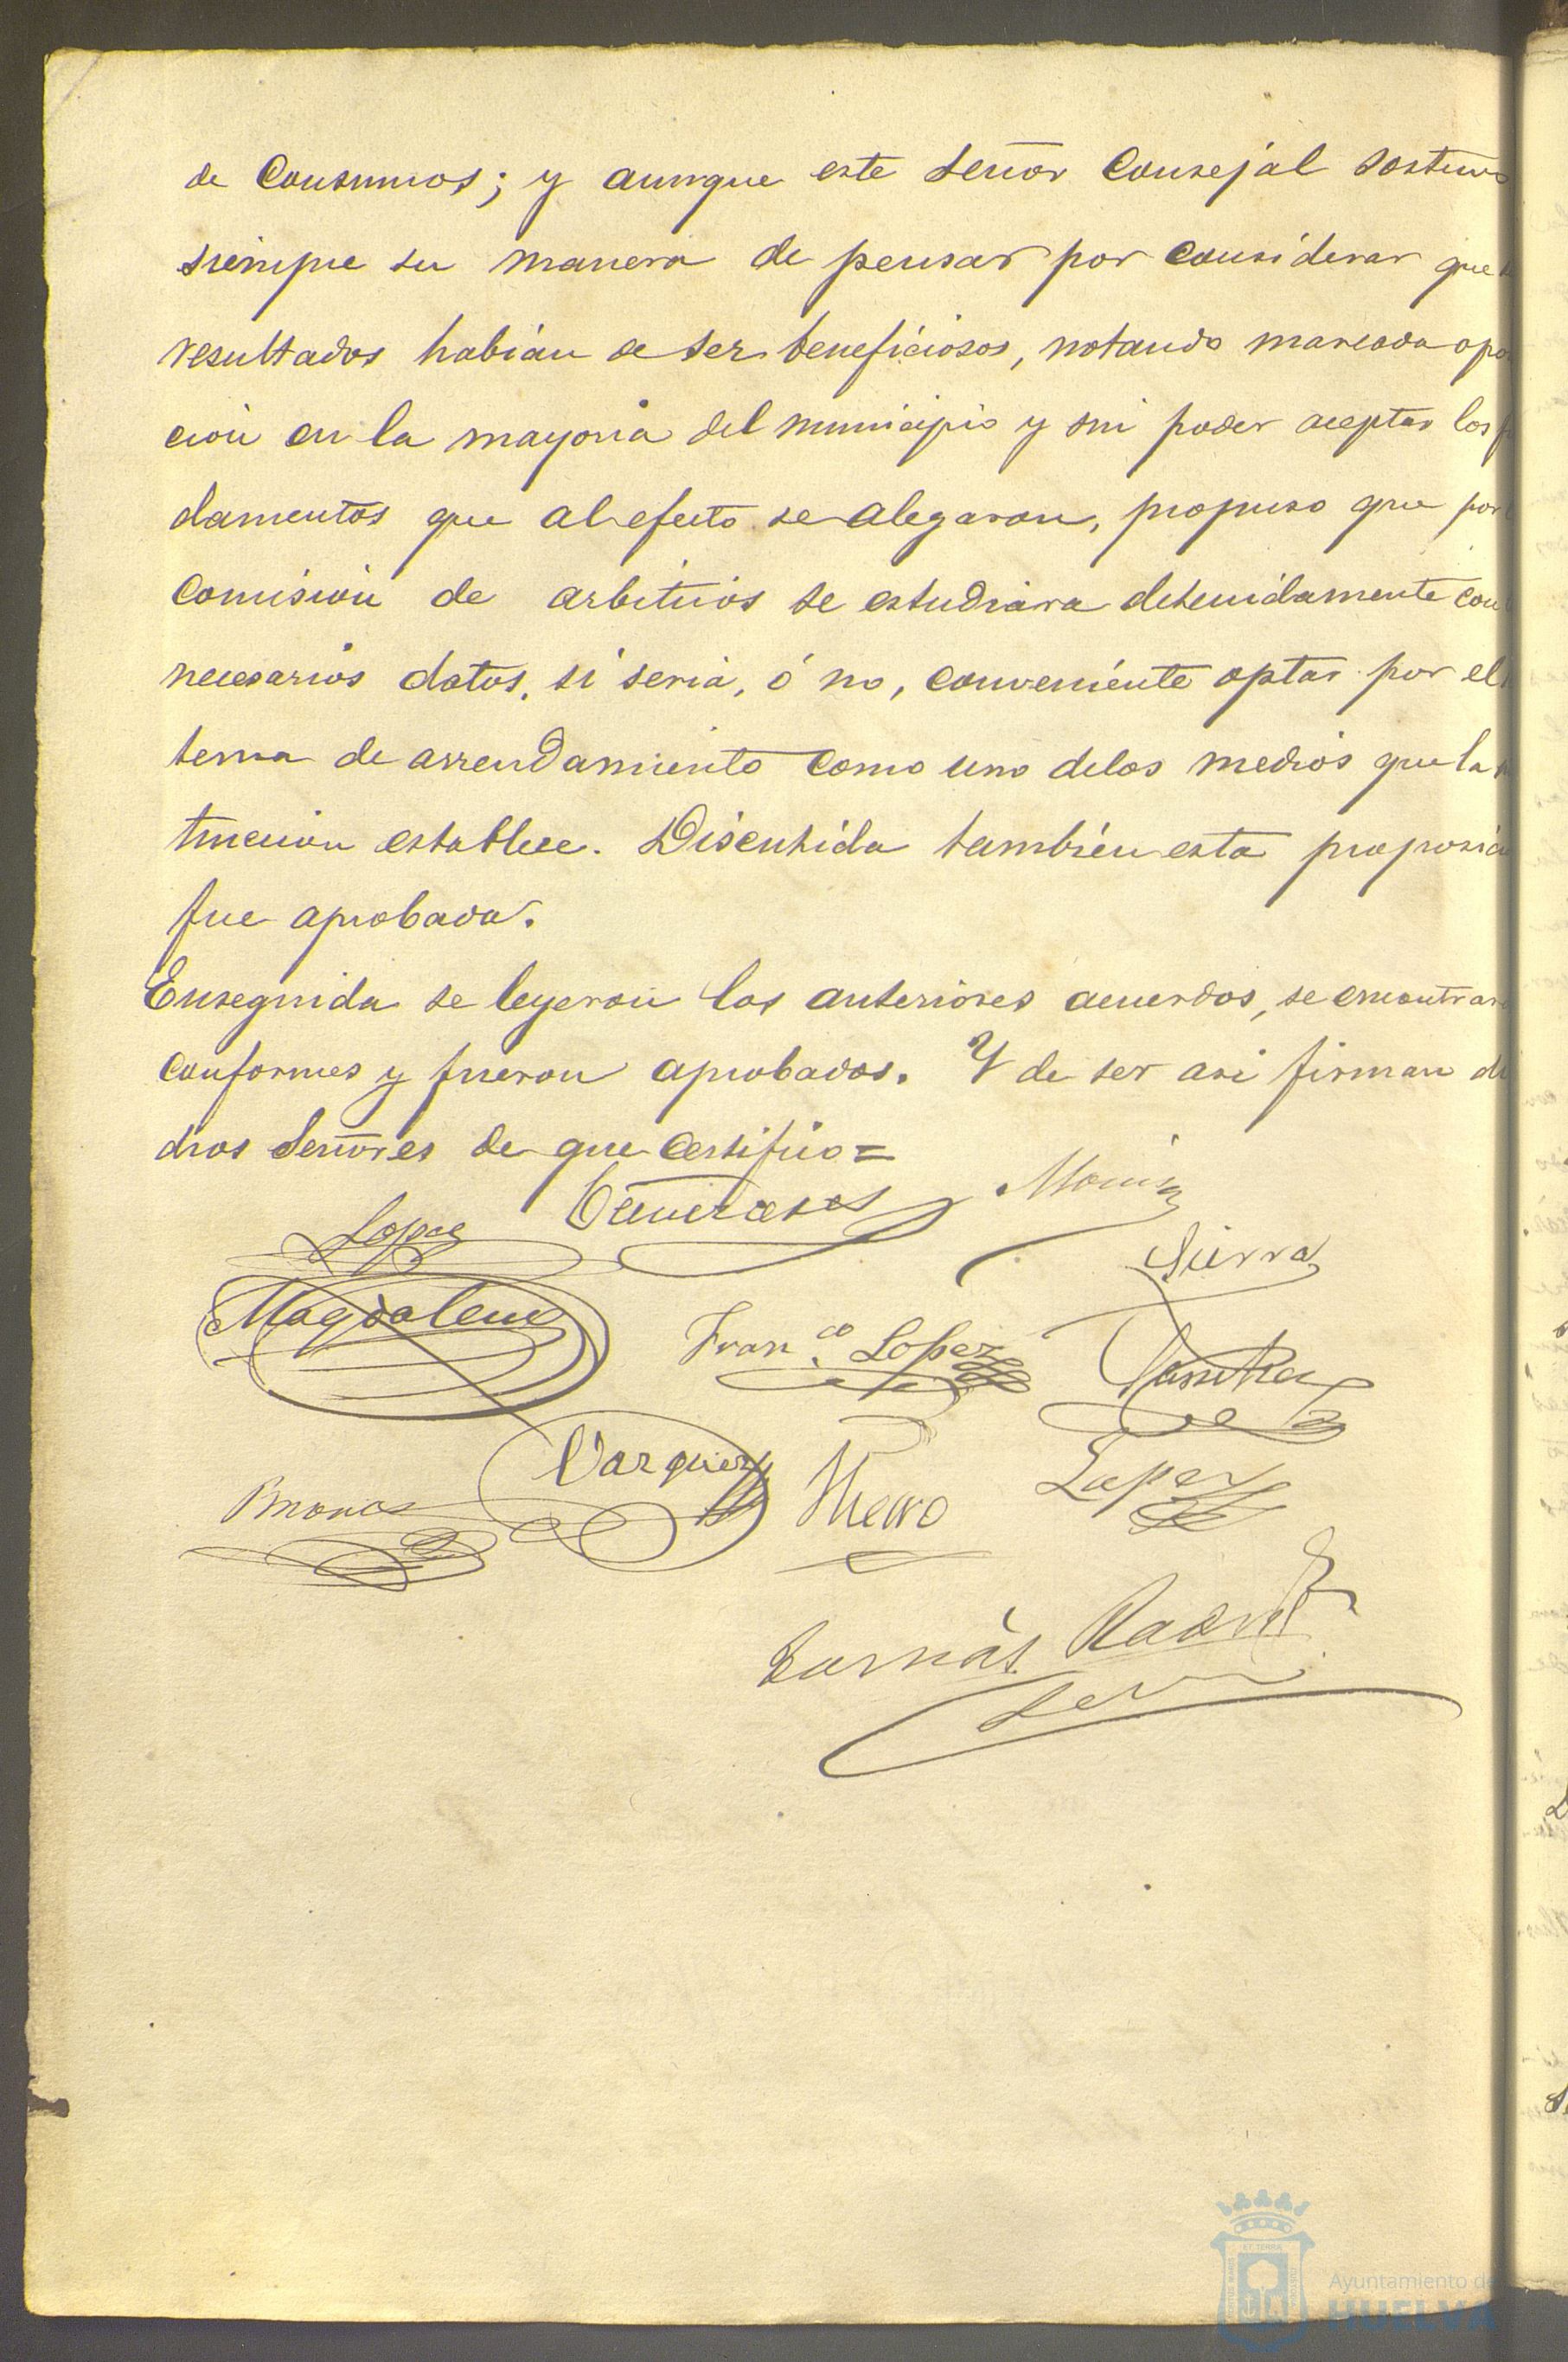 de Consumos; y aunque este Señor Consejal sostuvo
siempre su manera de pensar por considerar que
resultados habian de ser beneficiosos, notando marcada opo
ción en la mayoria del municipio y sin poder aceptar los
damentos que al efecto se alegaron, propuso que por
Comisión de arbitrios se estudiara detenidamente con
necesarios datos, si seria, ó no, conveniente optar por el
tema de arrendamiento como uno de los medios que la
trucción establece. Discutida también esta proposici
fue aprobada.
Enseguida se leyeron los anteriores acuerdos, se encontrar
conformes y fueron aprobados. Y de ser asi firman di
chos Señores de que certifico=
Lopez
Sierra
Magdalena
Fran.co Lopez
Vazquez
Lopez
Ayuntamiento de
HUELVA